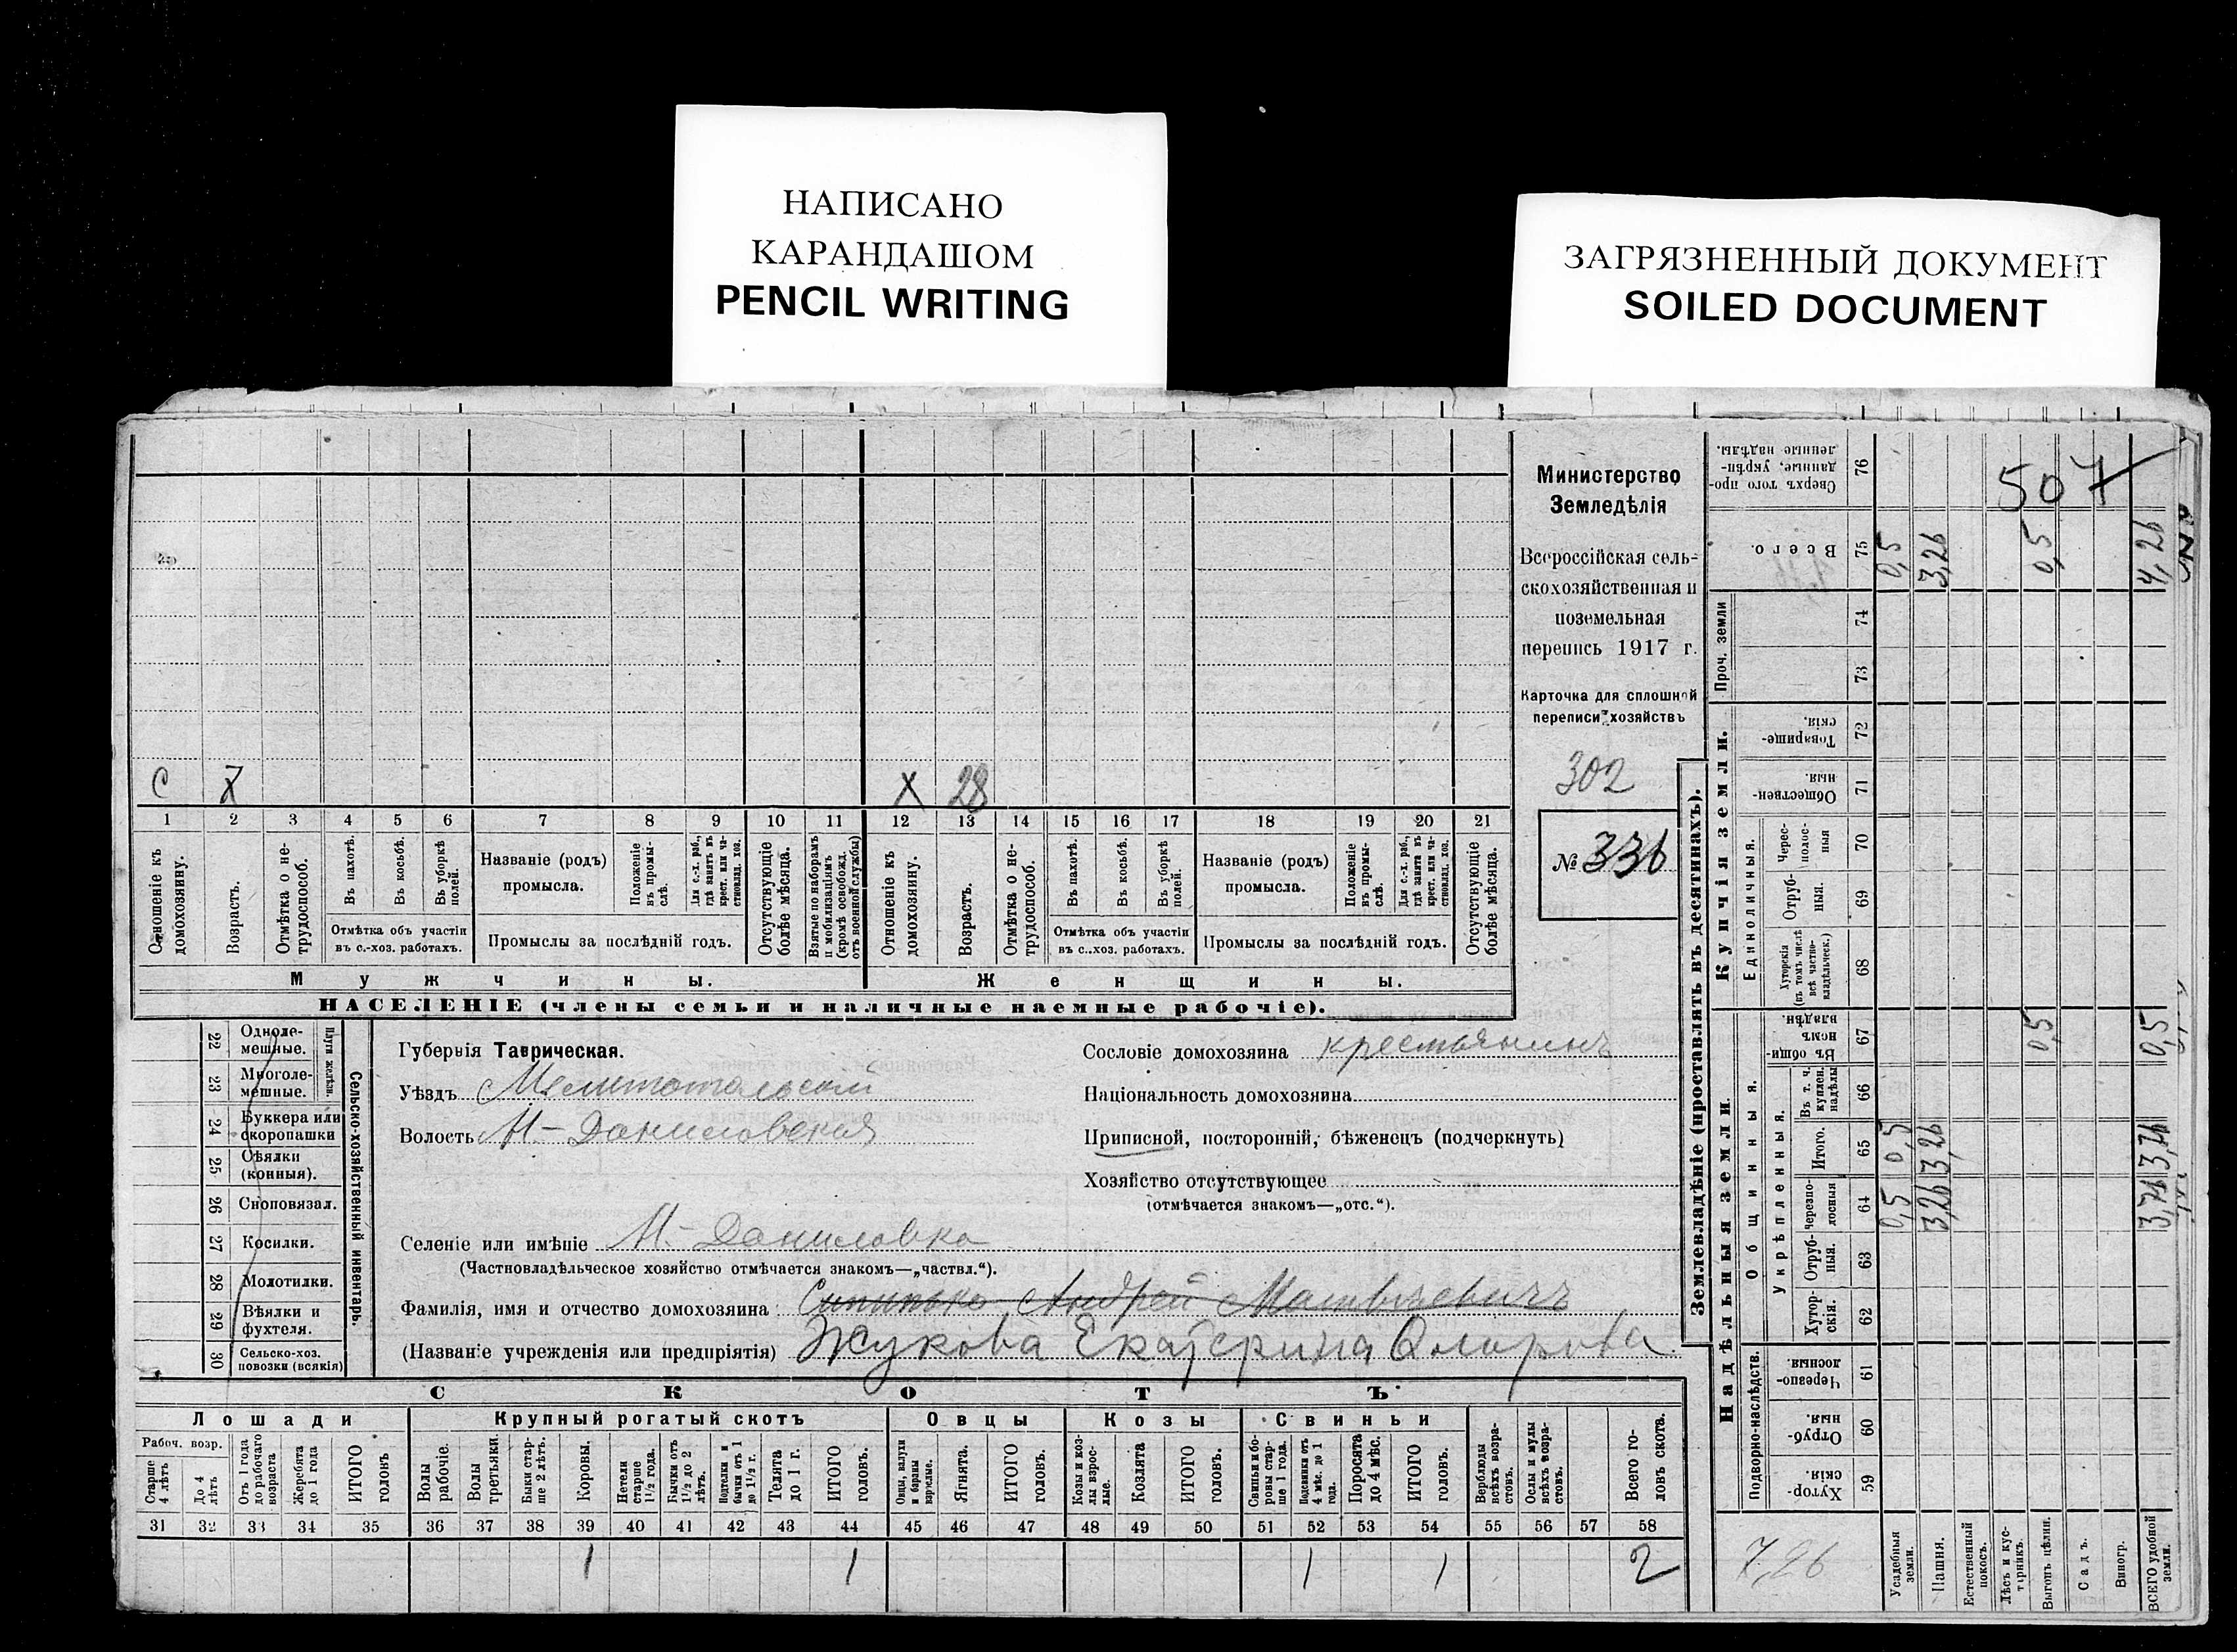 НАПИСАНО
КАРАНДАШОМ
PENCIL WRITING
ЗАГРЯЗНЕННЫЙ ДОКУМЕНТ
SOILED DOCUMENT
Министерство
Земледѣлія
Всероссійская сель-
скохозяйственная и
поземельная
перепись 1917 г.
Карточка для сплошной
переписи хозяйствъ
302
№ 336
507
С 7 X 28
1 2 3 4 5 6 7 8 9 10 11 12 13 14 15 16 17 18 19 20 21
Отношеніе къ домохозяину.
Возрастъ.
Отмѣтка о не-трудоспособ.
Въ пахотѣ.
Въ косьбѣ.
Въ уборкѣ полей.
Отмѣтка объ участіи
въ с.-хоз. работахъ.
Названіе (родъ)
промысла.
Положеніе въ промы-слѣ.
Для с.-х. раб., гдѣ занятъ въ крест. или ча-стновлад. хоз.
Промыслы за послѣдній годъ.
Отсутствующіе болѣе мѣсяца.
Взятые по наборамъ и мобилизаціямъ (кромѣ освобожд. отъ военной службы)
Отношеніе къ домохозяину.
Возрастъ.
Отмѣтка о не-трудоспособ.
Въ пахотѣ.
Въ косьбѣ.
Въ уборкѣ полей.
Отмѣтка объ участіи
въ с..хоз. работахъ.
Названіе (родъ)
промысла.
Положеніе въ промы-слѣ.
Для с.-х. раб., гдѣ занятъ въ крест. или ча-стновлад. хоз.
Промыслы за послѣдній годъ.
Отсутствующіе болѣе мѣсяца.
Мужчины. Женщины.
НАСЕЛЕНІЕ (члены семьи и наличные наемные рабочіе).
22 Одноле-мешные.
23 Многоле-мешные.
Плуги желѣзн.
24 Буккера или скоропашки
25 Сѣялки (конныя).
26 Сноповязал.
27 Косилки.
28 Молотилки.
29 Вѣялки и фухтеля.
30 Сельско-хоз. повозки (всякія)
Сельско-хозяйственный инвентарь.
Губернія Таврическая.
Уѣздъ Мелитопольскій
Волость М-Даниловская
Селеніе или имѣніе М-Даниловка
(Частновладѣльческое хозяйство отмѣчается знакомъ—„частвл.“).
Фамилія, имя и отчество домохозяина Андрей Матвѣевичъ
(Названіе учрежденія или предпріятія) Жукова Екатерина
Сословіе домохозяина крестьянинъ
Національность домохозяина
Приписной, посторонній, бѣженецъ (подчеркнуть)
Хозяйство отсутствующее
(отмѣчается знакомъ—„отс.“).
СКОТЪ
Лошади Крупный рогатый скотъ Овцы Козы Свиньи
Рабоч. возр.
Старше 4 лѣтъ
До 4 лѣтъ
Отъ 1 года до рабочаго возраста
Жеребята до 1 года
ИТОГО головъ
Волы рабочіе.
Волы третьяки.
Быки стар-ше 2 лѣтъ.
Коровы.
Нетели старше 1½ года.
Бычки отъ 1½ до 2 лѣтъ.
Подтелки и бычки отъ 1 до 1½ г.
Телята до 1 г.
ИТОГО головъ.
Овцы, валухи и бараны взрослые.
Ягнята.
ИТОГО головъ.
Козы и коз-лы взрос-лые.
Козлята
ИТОГО головъ.
Свиньи и бо-ровы стар-ше 1 года.
Подсвинки отъ 4 мѣс. до 1 года.
Поросята до 4 мѣс.
ИТОГО головъ.
Верблюды всѣхъ возра-стовъ.
Ослы и мулы всѣхъ возра-стовъ.
Всего го-ловъ скота.
31 32 33 34 35 36 37 38 39 40 41 42 43 44 45 46 47 48 49 50 51 52 53 54 55 56 57 58
1 1 1 1 2
Землевладѣніе (проставлять въ десятинахъ).
Сверхъ того про-данные, укрѣп-ленные надѣлы. 76
Всего. 75 0,5 3,26 0,5 4,26
Проч. земли 74 73
Купчія земли.
Товарище-скія. 72
Обществен-ныя. 71
Единоличныя.
Черес-полос-ныя 70
Отруб-ныя. 69
Хуторскія (въ томъ числѣ всѣ частно-владѣльческ.) 68
Надѣльныя земли
Общинныя.
Въ общи-нномъ владѣн. 67 0,5 0,5
Укрѣпленныя.
Въ т. ч. куплен. надѣлы 66
Итого. 65 0,5 3,26 3,76
Черезпо-лосныя 64 0,5 3,26 3,76
Отруб-ныя. 63
Хутор-скія. 62
Подворно-наслѣдств.
Черезпо-лосныя. 61
Отруб-ныя. 60
Хутор-скія. 59
7,26
Усадебныя земли.
Пашня.
Естественный покосъ.
Лѣсъ и кус-тарникъ.
Выгонъ цѣлин.
Садъ.
Виногр.
ВСЕГО удобной земли.